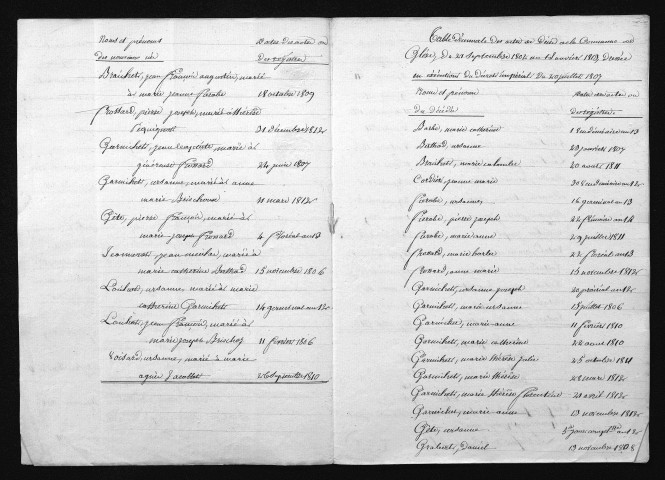 Noms et prénoms
Date des actes ou
des nouveaux mariés
du registre
Brischoti, jean françois augustin, marié
à marie jeanne Pierobe 18 octobre 1809
Frossard, pierre joseph, marié à thérèse
Pequignot 31 décembre 1812
Garnichots, jean baptiste, marié à
générause frossard 24 juin 1807
Garnichots, ursanne, marié à anne
marie Brischoux 11 mars 1812
Gête, pierre françois, marié à
marie joseph frossard 4 floréal an 13
Jeannerat, jean nicolas, marié à
marie catherine Barthod 15 novembre 1806
Loichot, ursanne, marié à marie
catherine Garnichots 14 germinal an 12
Loichots, jean françois, marié à
marie joseph Brischoy 11 février 1806
Voisard, ursanne, marié à marie
agnès Jacollot juillet 1810
Table décennale des actes de Décès de la commune de
Glère, du 21 septembre 1802 au 1er janvier 1813, dressée
en exécution du décret impérial du 20 juillet 1807
Noms et prénoms
date des actes ou
du Décédé
du registre
Barbe, marie catherine vendémiaire an 13
Barthod, ursanne 29 janvier 1807
Brischoti, marie colombe 20 août 1811
Cordier, jeanne marie vendémiaire an 12
Pierobe, ursanne 16 germinal an 13
Pierobe, pierre joseph 22 frimaire an 14
Pierobe, marie anne 29 juillet 1811
Frossard, marie barbe 22 floréal an 13
Frossard, anne marie 13 novembre 1812
Garnichots, ursanne joseph 20 prairial an 12
Garnichots, marie ursanne 15 juillet 1806
Garnichot, marie anne 11 février 1810
Garnichots, marie catherine 1810
Garnichots, marie thérèse julie 25 octobre 1811
Garnichots, marie thérèse 22 mars 1812
Garnichots, marie thérèse 21 avril 1812
Garnichot, marie anne 13 novembre 1812
Gête, ursanne 5e jour complre an 12
Gralioth, Daniel 13 novembre 1808